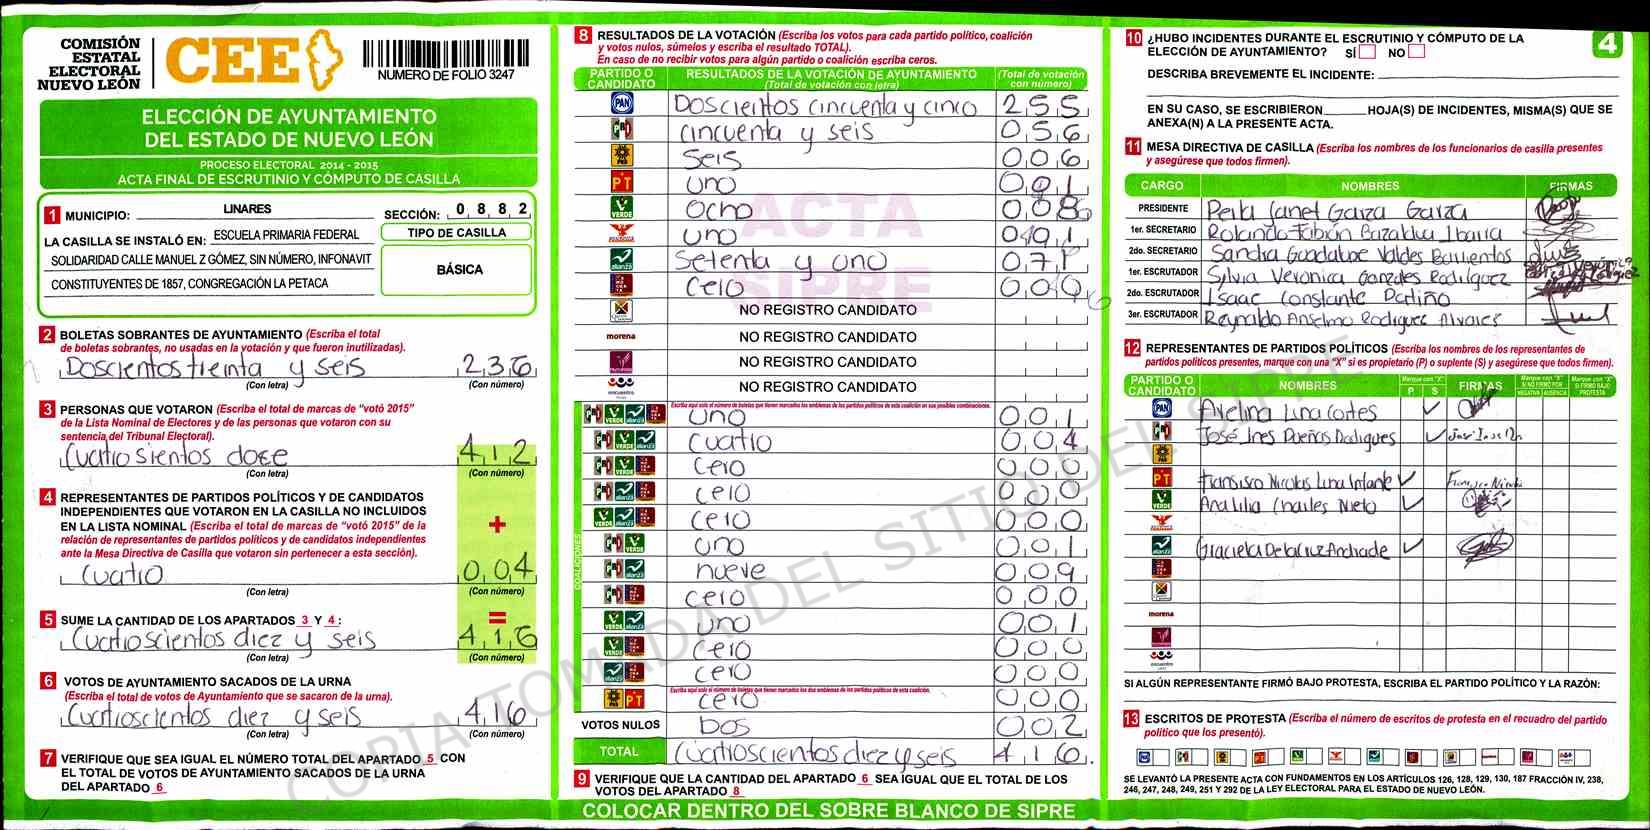 COMISIÓN
ESTATAL
ELECTORAL
NUEVO LEÓN
CEE
NUMERO DE FOLIO 3247
ELECCIÓN DE AYUNTAMIENTO
DEL ESTADO DE NUEVO LEÓN
PROCESO ELECTORAL 2014 - 2015
ACTA FINAL DE ESCRUTINIO Y CÓMPUTO DE CASILLA
1 MUNICIPIO: LINARES SECCIÓN: 0 8 8 2
LA CASILLA SE INSTALÓ EN: ESCUELA PRIMARIA FEDERAL
SOLIDARIDAD CALLE MANUEL Z GÓMEZ, SIN NÚMERO, INFONAVIT
CONSTITUYENTES DE 1857, CONGREGACIÓN LA PETACA
TIPO DE CASILLA
BÁSICA
2 BOLETAS SOBRANTES DE AYUNTAMIENTO (Escriba el total
de boletas sobrantes, no usadas en la votación y que fueron inutilizadas).
Doscientos treinta y seis 2 3 6
(Con letra) (Con número)
3 PERSONAS QUE VOTARON (Escriba el total de marcas de “votó 2015”
de la Lista Nominal de Electores y de las personas que votaron con su
sentencia del Tribunal Electoral).
Cuatro sientos doce 4 1 2
(Con letra) (Con número)
4 REPRESENTANTES DE PARTIDOS POLÍTICOS Y DE CANDIDATOS
INDEPENDIENTES QUE VOTARON EN LA CASILLA NO INCLUIDOS
EN LA LISTA NOMINAL (Escriba el total de marcas de “votó 2015” de la
relación de representantes de partidos políticos y de candidatos independientes
ante la Mesa Directiva de Casilla que votaron sin pertenecer a esta sección).
+
Cuatro 0 0 4
(Con letra) (Con número)
5 SUME LA CANTIDAD DE LOS APARTADOS 3 Y 4: =
Cuatroscientos diez y seis 4 1 6
(Con letra) (Con número)
6 VOTOS DE AYUNTAMIENTO SACADOS DE LA URNA
(Escriba el total de votos de Ayuntamiento que se sacaron de la urna).
Cuatroscientos diez y seis 4 1 6
(Con letra) (Con número)
7 VERIFIQUE QUE SEA IGUAL EL NÚMERO TOTAL DEL APARTADO 5 CON
EL TOTAL DE VOTOS DE AYUNTAMIENTO SACADOS DE LA URNA
DEL APARTADO 6
8 RESULTADOS DE LA VOTACIÓN (Escriba los votos para cada partido político, coalición
y votos nulos, súmelos y escriba el resultado TOTAL).
En caso de no recibir votos para algún partido o coalición escriba ceros.
PARTIDO O CANDIDATO RESULTADOS DE LA VOTACIÓN DE AYUNTAMIENTO (Total de votación con letra) (Total de votación con número)
PAN Doscientos cincuenta y cinco 2 5 5
PRI cincuenta y seis 0 5 6
PRD seis 0 0 6
PT uno 0 0 1
VERDE ocho 0 0 8
uno 0 0 1
alianza setenta y uno 0 7 1
cero 0 0 0
NO REGISTRO CANDIDATO
morena NO REGISTRO CANDIDATO
NO REGISTRO CANDIDATO
encuentro NO REGISTRO CANDIDATO
Escriba aquí solo el número de boletas que tienen marcados los emblemas de los partidos políticos de esta coalición en sus posibles combinaciones.
COALICIONES
uno 0 0 1
cuatro 0 0 4
cero 0 0 0
cero 0 0 0
cero 0 0 0
uno 0 0 1
nueve 0 0 9
cero 0 0 0
uno 0 0 1
cero 0 0 0
cero 0 0 0
Escriba aquí solo el número de boletas que tienen marcados los dos emblemas de los partidos políticos de esta coalición.
PRD PT cero 0 0 0
VOTOS NULOS Dos 0 0 2
TOTAL Cuatroscientos diez y seis 4 1 6
9 VERIFIQUE QUE LA CANTIDAD DEL APARTADO 6 SEA IGUAL QUE EL TOTAL DE LOS
VOTOS DEL APARTADO 8
COLOCAR DENTRO DEL SOBRE BLANCO DE SIPRE
ACTA
SIPRE
COPIA TOMADA DEL SITIO DEL SIPRE
4
10 ¿HUBO INCIDENTES DURANTE EL ESCRUTINIO Y CÓMPUTO DE LA
ELECCIÓN DE AYUNTAMIENTO? SÍ NO
DESCRIBA BREVEMENTE EL INCIDENTE:
EN SU CASO, SE ESCRIBIERON HOJA(S) DE INCIDENTES, MISMA(S) QUE SE
ANEXA(N) A LA PRESENTE ACTA.
11 MESA DIRECTIVA DE CASILLA (Escriba los nombres de los funcionarios de casilla presentes
y asegúrese que todos firmen).
CARGO NOMBRES FIRMAS
PRESIDENTE Perla Janet Garza Garza
1er. SECRETARIO Rolando Fabián Bazaldua Ibarra
2do. SECRETARIO Sandra Guadalupe Valdes Barrientos
1er. ESCRUTADOR Sylvia Veronica Gonzales Rodriguez
2do. ESCRUTADOR Isaac Constante Patiño
3er. ESCRUTADOR Reynaldo Anselmo Rodriguez Alvares
12 REPRESENTANTES DE PARTIDOS POLÍTICOS (Escriba los nombres de los representantes de
partidos políticos presentes, marque con una “X” si es propietario (P) o suplente (S) y asegúrese que todos firmen).
PARTIDO O CANDIDATO NOMBRES Marque con "X" P S FIRMAS Marque con "X" SI NO FIRMÓ POR NEGATIVA AUSENCIA Marque con "X" SI FIRMÓ BAJO PROTESTA
PAN Avelina Luna Cortes
PRI José Ines Dueñas Rodrigues
PRD
PT Fransisco Nicolas Luna Infante
VERDE Analilia Charles Nieto
alianza Graciela De la Cruz Andrade
morena
encuentro
SI ALGÚN REPRESENTANTE FIRMÓ BAJO PROTESTA, ESCRIBA EL PARTIDO POLÍTICO Y LA RAZÓN:
13 ESCRITOS DE PROTESTA (Escriba el número de escritos de protesta en el recuadro del partido
político que los presentó).
SE LEVANTÓ LA PRESENTE ACTA CON FUNDAMENTOS EN LOS ARTÍCULOS 126, 128, 129, 130, 187 FRACCIÓN IV, 238,
246, 247, 248, 249, 251 Y 292 DE LA LEY ELECTORAL PARA EL ESTADO DE NUEVO LEÓN.